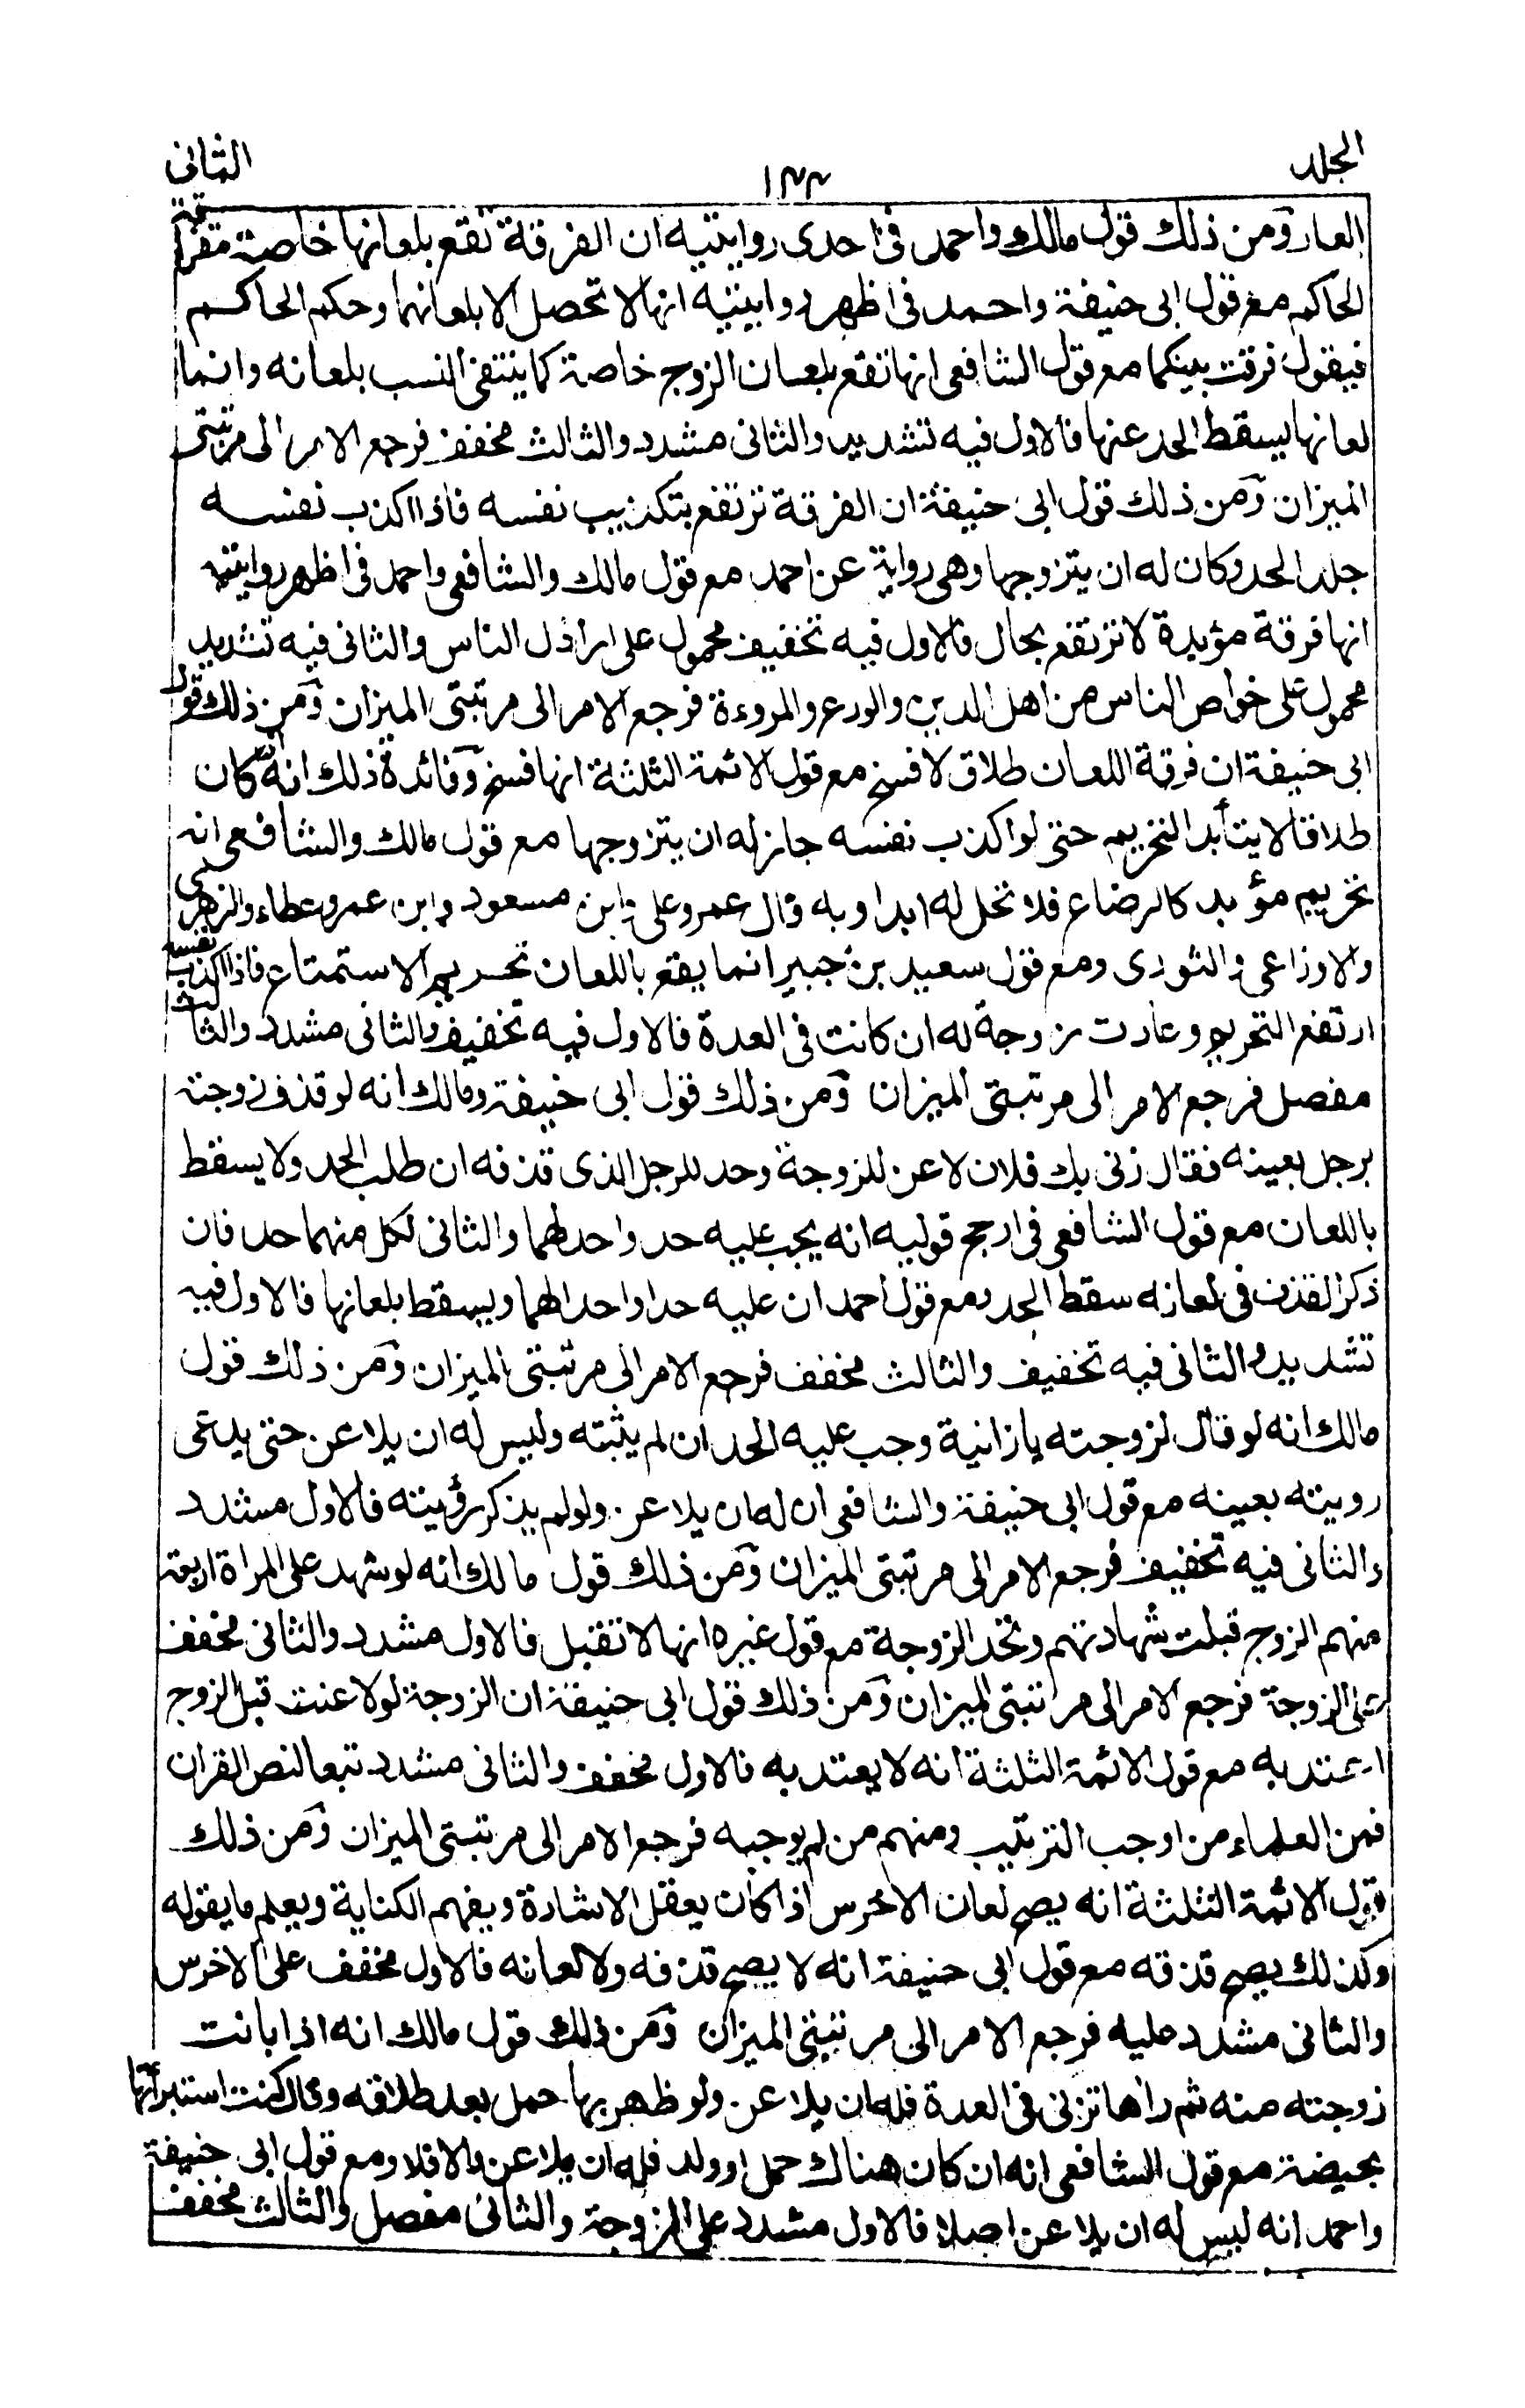 الجلد ١٣٣ الثانى
العار ومن ذلك قول مالك واحمد فى احدى روايتيه ان الفرقة تقع بلعانها خاصة
الحاكم مع قول ابى حنيفة واحمد فى اظهر روايتيه انها لا تحصل الا بلعانهما وحكم الحاكم
فيقول فرقت بينكما مع قول الشافعى انها تقع بلعان الزوج خاصة كما ينتفى النسب بلعانه وانما
لعانها يسقط الحد عنها فالاول فيه تشديد والثانى مشدد والثالث مخفف فرجع الامر الى مرتبتى
الميزان ومن ذلك قول ابى حنيفة ان الفرقة ترتفع بتكذيب نفسه فاذا اكذب نفسه
جلد الحد وكان له ان يتزوجها وهى رواية عن احمد مع قول مالك والشافعى واحمد فى اظهر روايتيه
انها فرقة مؤبدة لا ترتفع بحال فالاول فيه تخفيف محمول على اراذل الناس والثانى فيه تشديد
محمول على خواص الناس من اهل الدين والورع والمروءة فرجع الامر الى مرتبتى الميزان ومن ذلك قول
ابى حنيفة ان فرقة اللعان طلاق لا فسخ مع قول الائمة الثلثة انها فسخ وفائدة ذلك انه ان كان
طلاقا لا يتأبد التحريم حتى لو اكذب نفسه جاز له ان يتزوجها مع قول مالك والشافعى انه
تحريم مؤبد كالرضاع فلا تحل له ابدا وبه قال عمر وعلى وابن مسعود وابن عمر وعطاء والزهرى
والاوزاعى والثورى ومع قول سعيد بن جبير انما يقع باللعان تحريم الاستمتاع فاذا اكذب نفسه
ارتفع التحريم وعادت زوجة له ان كانت فى العدة فالاول فيه تخفيف والثانى مشدد والثالث
مفصل فرجع الامر الى مرتبتى الميزان ومن ذلك قول ابى حنيفة ومالك انه لو قذف زوجته
برجل بعينه فقال زنى بك فلان لاعن للزوجة وحد للرجل الذى قذفه ان طلب الحد ولا يسقط
باللعان مع قول الشافعى فى ارجح قوليه انه يجب عليه حد واحد لهما والثانى لكل منهما حد فان
ذكر القذف فى لعانه سقط الحد ومع قول احمد ان عليه حدا واحدا لهما ويسقط بلعانها فالاول فيه
تشديد والثانى فيه تخفيف والثالث مخفف فرجع الامر الى مرتبتى الميزان ومن ذلك قول
مالك انه لو قال لزوجته يا زانية وجب عليه الحد ان لم يثبته وليس له ان يلاعن حتى يدعى
رويته بعينه مع قول ابى حنيفة والشافعى ان له ان يلاعن ولو لم يذكر رؤيته فالاول مشدد
والثانى فيه تخفيف فرجع الامر الى مرتبتى الميزان ومن ذلك قول مالك انه لو شهد على المراة اربعة
منهم الزوج قبلت شهادتهم وتحد الزوجة مع قول غيره انها لا تقبل فالاول مشدد والثانى مخفف
على الزوجة فرجع الامر الى مرتبتى الميزان ومن ذلك قول ابى حنيفة ان الزوجة لو لاعنت قبل الزوج
اعتد به مع قول الائمة الثلثة انه لا يعتد به فالاول مخفف والثانى مشدد تبعا لنص القران
فمن العلماء من اوجب الترتيب ومنهم من لم يوجبه فرجع الامر الى مرتبتى الميزان ومن ذلك
قول الائمة الثلثة انه يصح لعان الاخرس اذا كان يعقل الاشارة ويفهم الكناية ويعلم ما يقوله
وكذلك يصح قذفه مع قول ابى حنيفة انه لا يصح قذفه ولا لعانه فالاول مخفف على الاخرس
والثانى مشدد عليه فرجع الامر الى مرتبتى الميزان ومن ذلك قول مالك انه اذا بانت
زوجته منه ثم راها تزنى فى العدة فله ان يلاعن ولو ظهر بها حمل بعد طلاقه وقال كنت استبرأتها
بحيضة مع قول الشافعى انه ان كان هناك حمل او ولد فله ان يلاعن والا فلا ومع قول ابى حنيفة
واحمد انه ليس له ان يلاعن اصلا فالاول مشدد على الزوجة والثانى مفصل والثالث مخفف